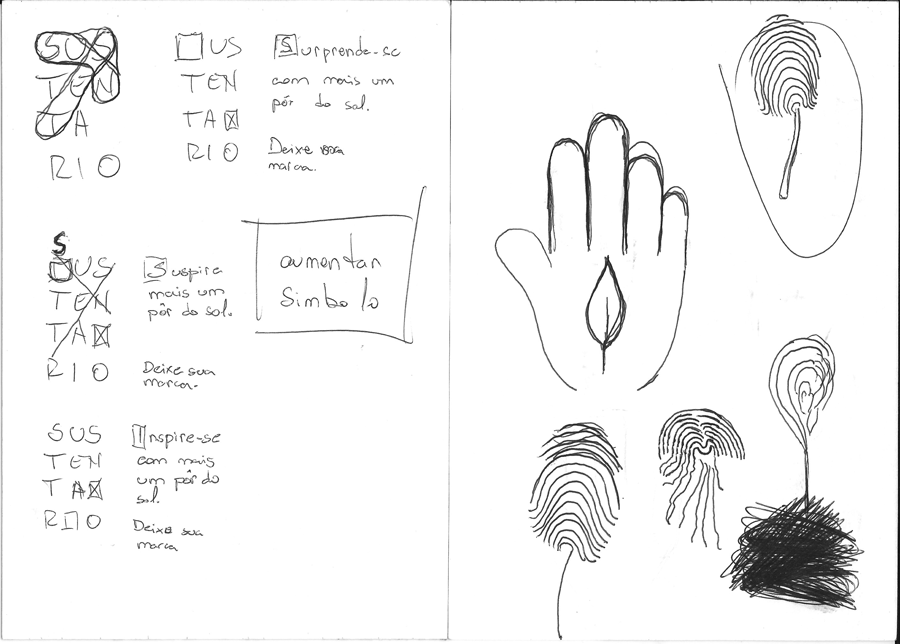 SUS
TEN
TA
RIO
US
TEN
TA
RIO
Surprende-se
com mais um
pôr do sol.
Deixe sua
marca.
S
US
TEN
TA
RIO
Suspire
mais um
pôr do sol.
Deixe sua
marca.
aumentar
Simbolo
SUS
TEN
TA
RIO
Inspire-se
com mais
um pôr do
sol.
Deixe sua
marca